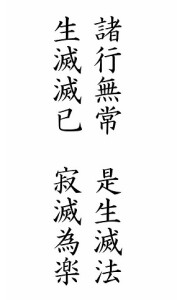 諸行無常　是生滅法
生滅滅已　寂滅為楽